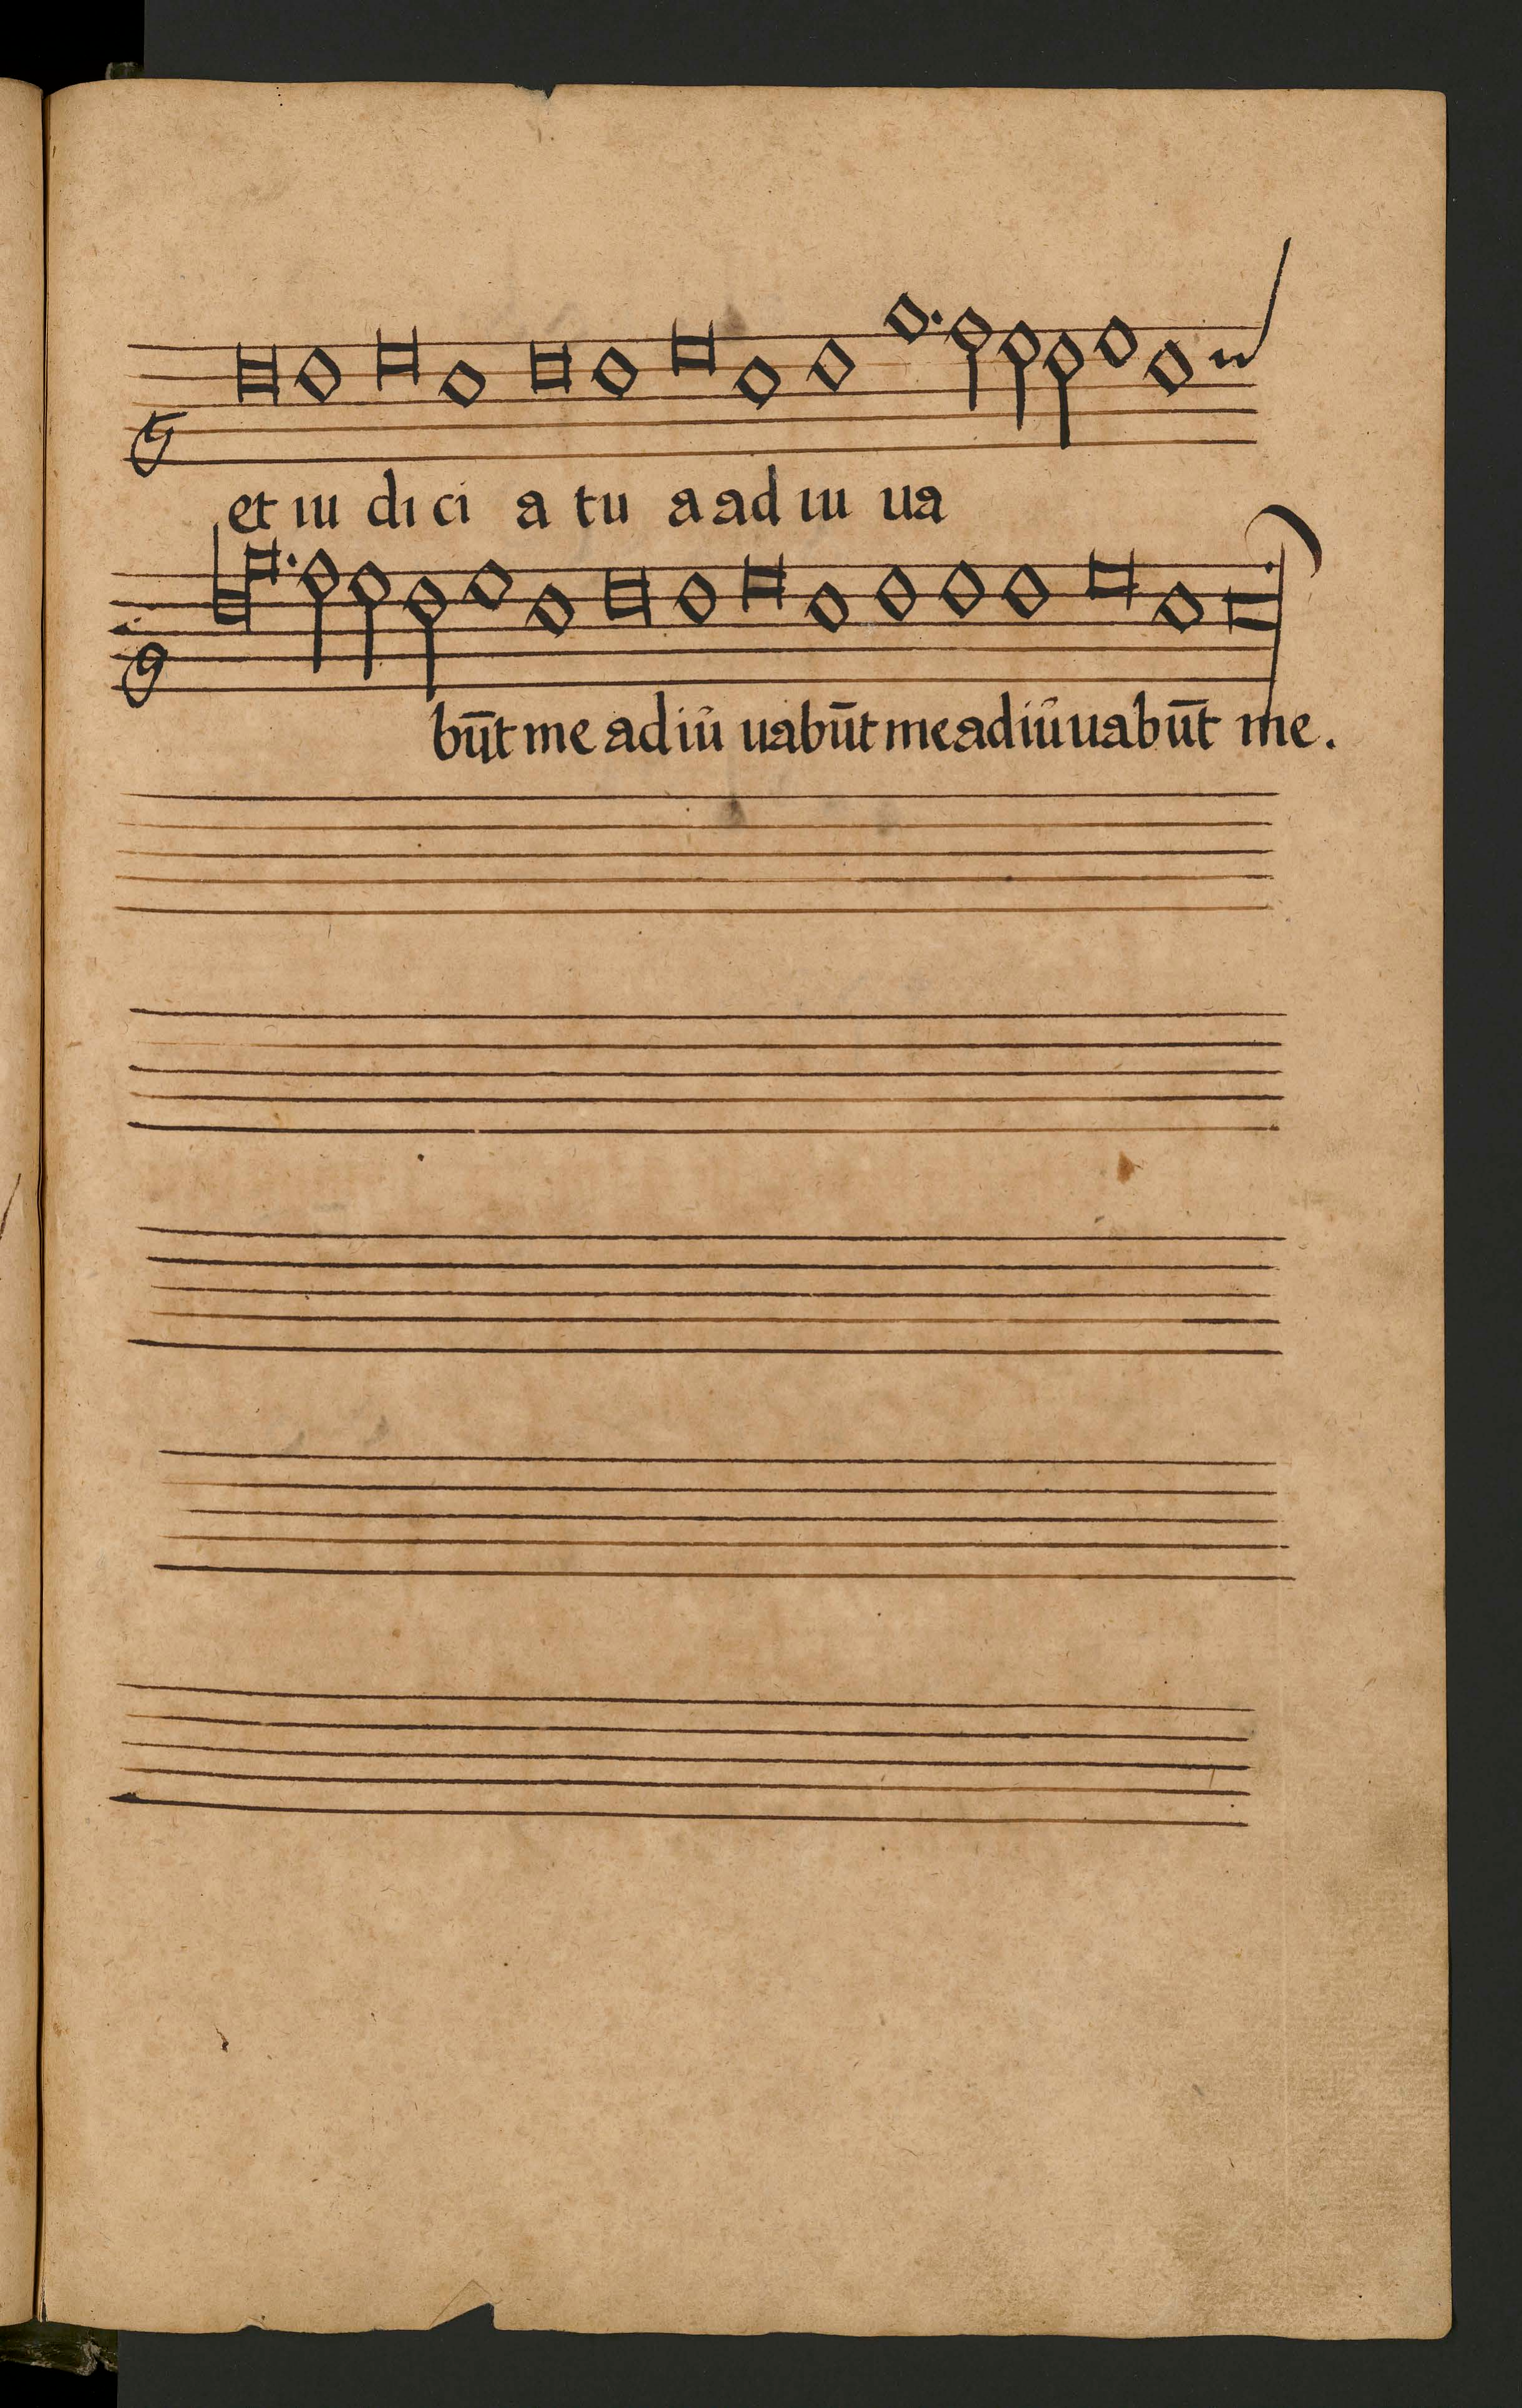 et iu di ci a tu a ad iu ua
būt me ad iū uabūt me adiūuabūt me.